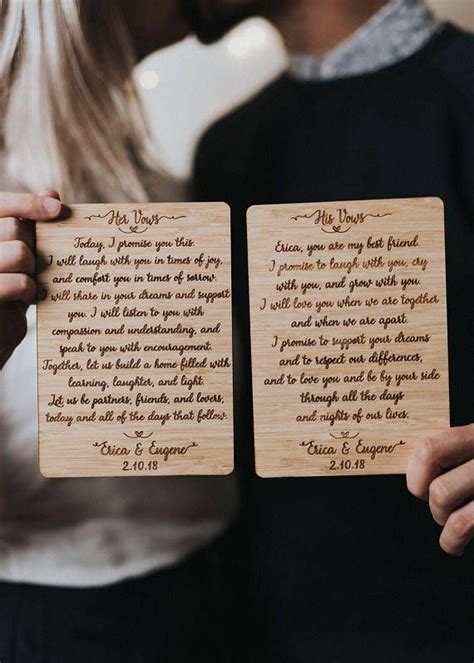 Her Vows
Today, I promise you this.
I will laugh with you in times of joy,
and comfort you in times of sorrow.
I will share in your dreams and support
you. I will listen to you with
compassion and understanding, and
speak to you with encouragement.
Together, let us build a home filled with
learning, laughter, and light.
Let us be partners, friends, and lovers,
today and all of the days that follow.
Erica & Eugene
2.10.18
His Vows
Erica, you are my best friend.
I promise to laugh with you, cry
with you, and grow with you.
I will love you when we are together
and when we are apart.
I promise to support your dreams
and to respect our differences,
and to love you and be by your side
through all the days
and nights of our lives.
Erica & Eugene
2.10.18